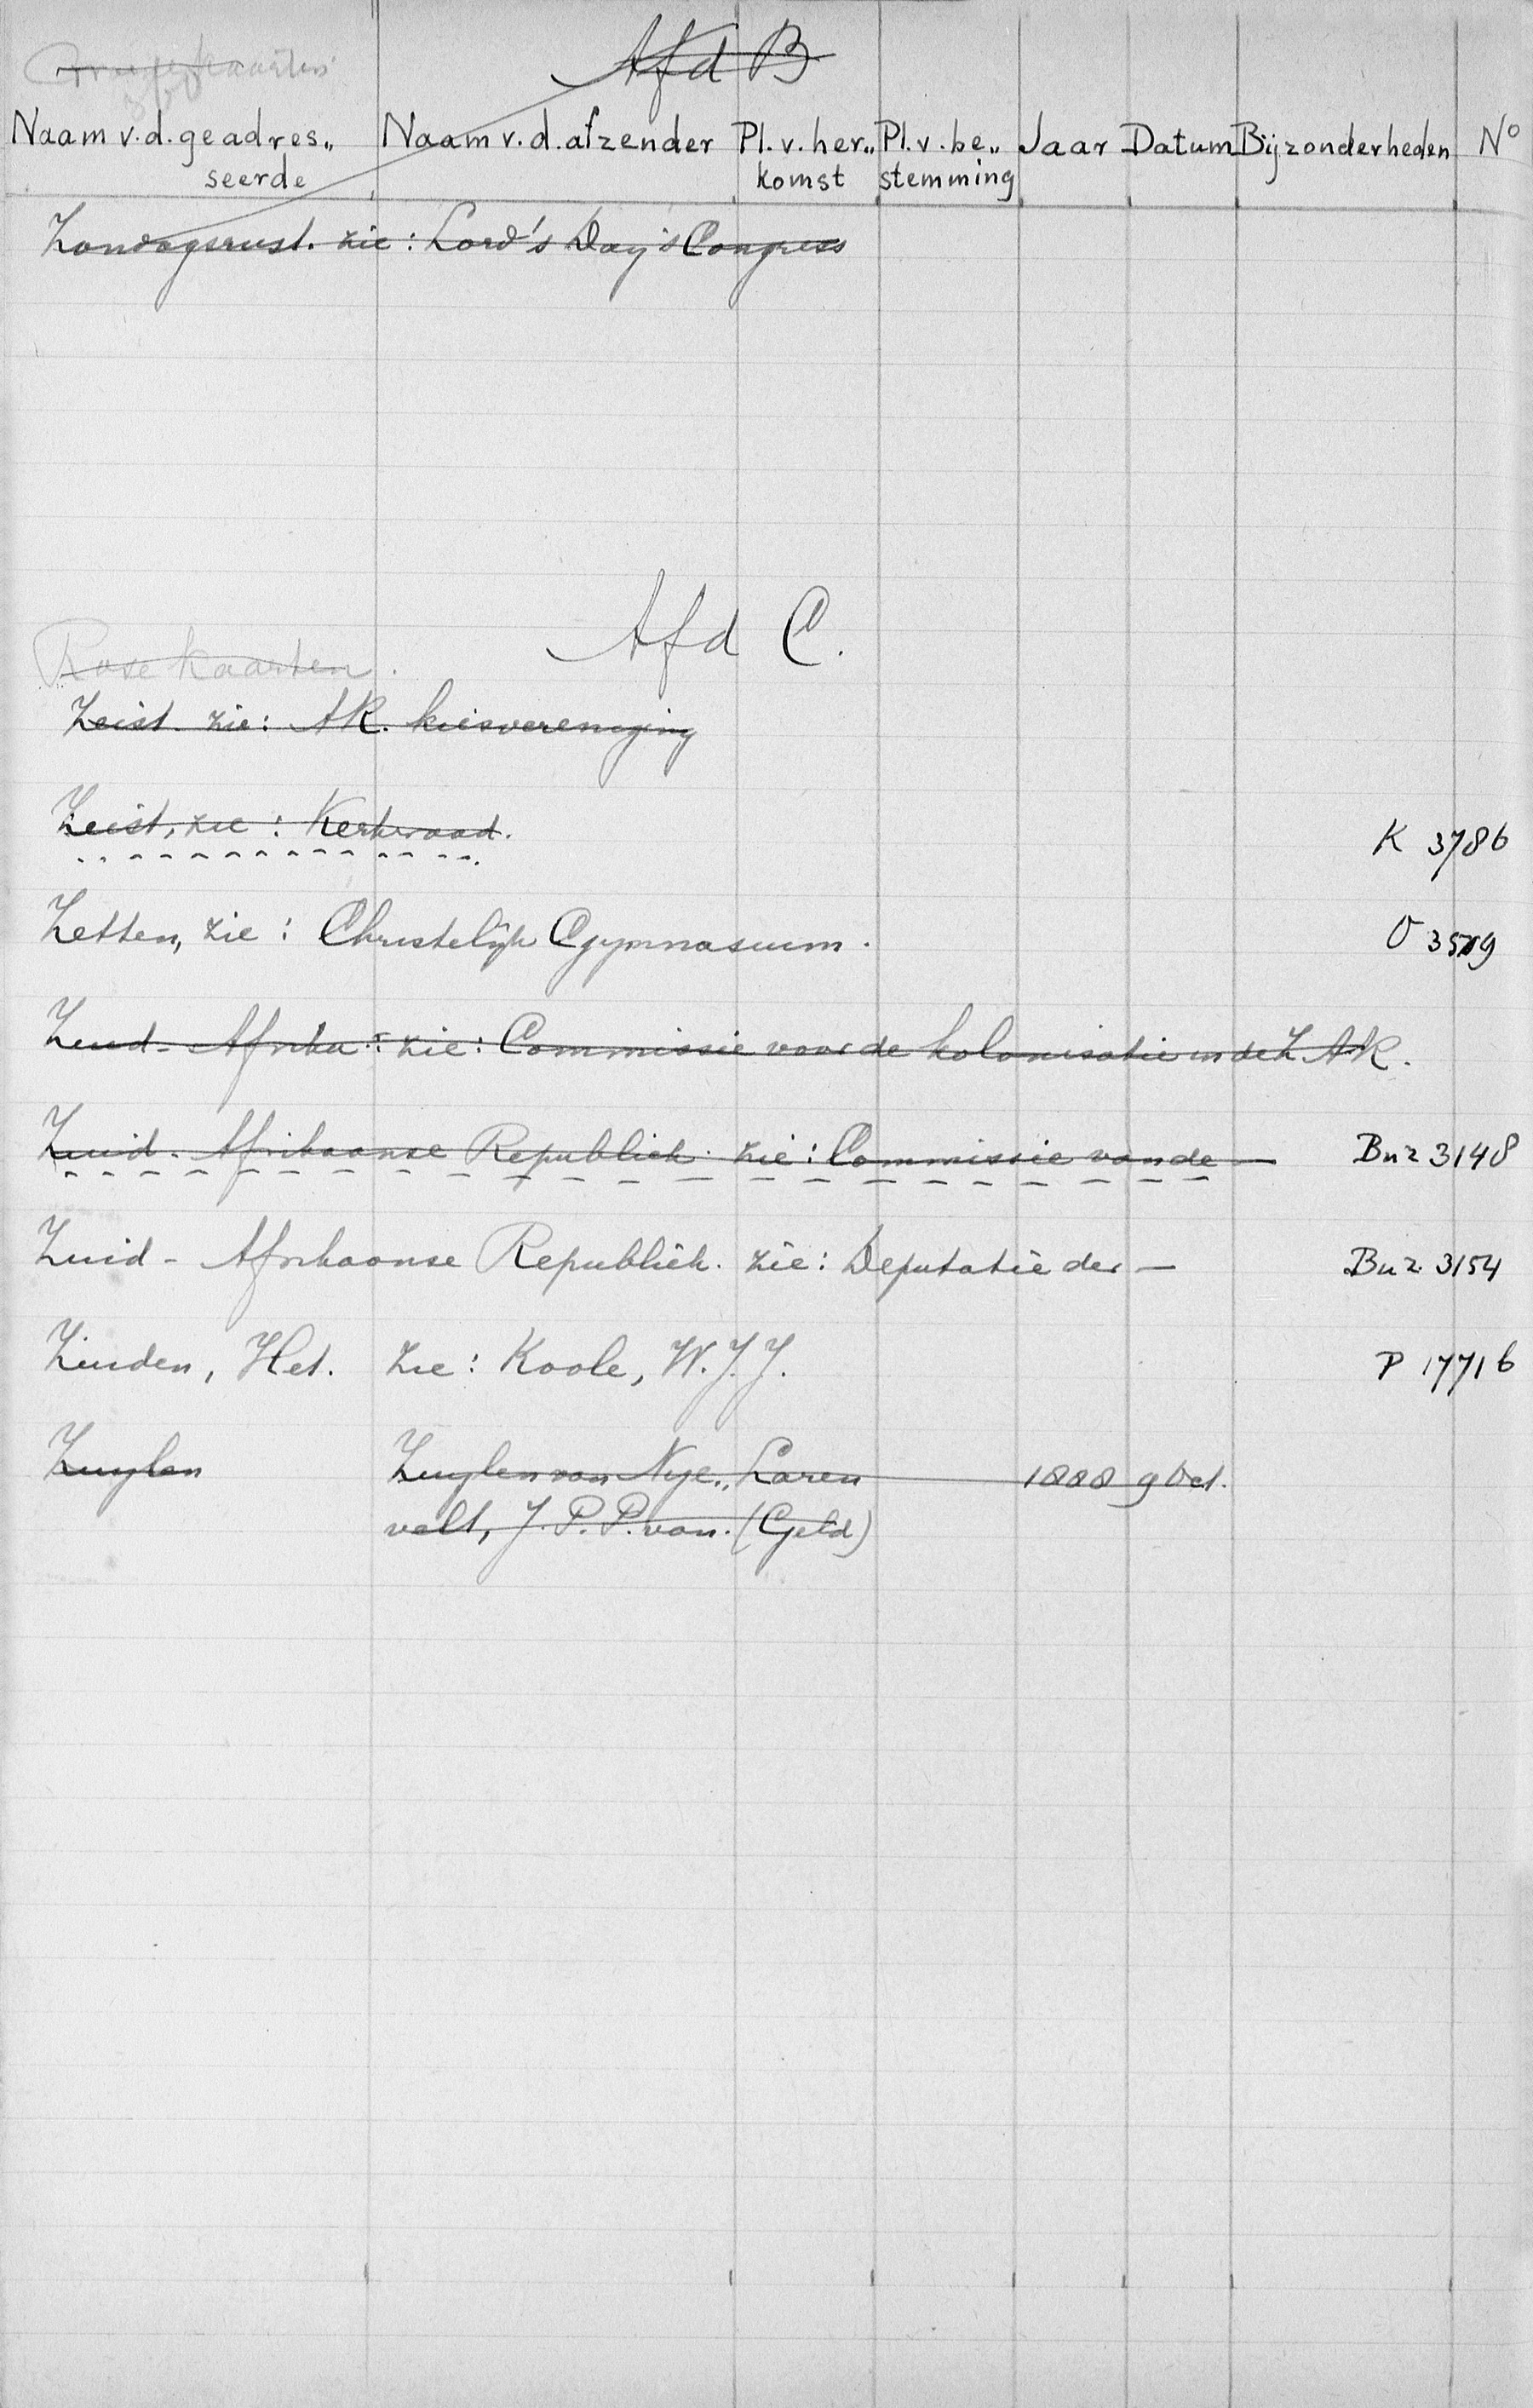 kaarten
Afd B
Naam v.d. geadres„ Naam v.d. afzender Pl. v. her„ Pl. v. be„ Jaar Datum Bijzonderheden No
seerde komst stemming
Zondagsrust. zie: Lord's Day's Congress
Afd C.
Rose kaarten.
Zeist. zie: AR. kiesvereniging
Zeist, zie: Kerkeraad. K 3786
Zetten, zie: Christelijk Gymnasium. O 3519
Zuid-Afrika: zie: Commissie voor de kolonisatie in de Z. AR.
Zuid-Afrikaanse Republiek. zie: Commissie van de — Bnz 3148
Zuid-Afrikaanse Republiek. zie: Deputatie der — Bnz 3154
Zuiden, Het. zie: Koole, W.J.J. P 17716
Zuylen Zuylen van Nye„ Laren 1888 9 Oct.
velt, J.P.P. van. (Geld)